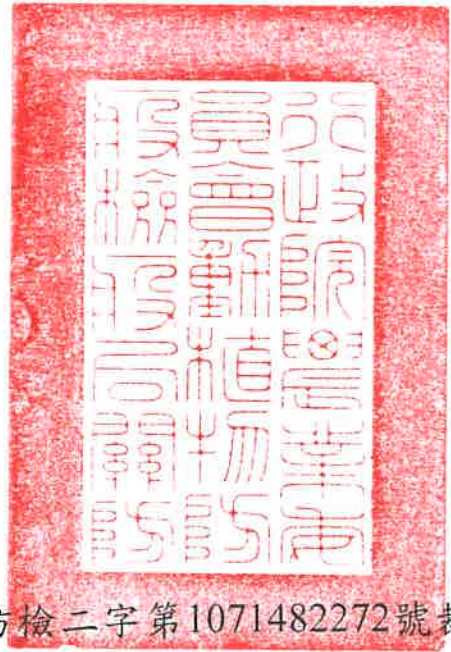 行政院農業委
員會動植物防
疫檢疫局關防
防檢二字第1071482272號裁